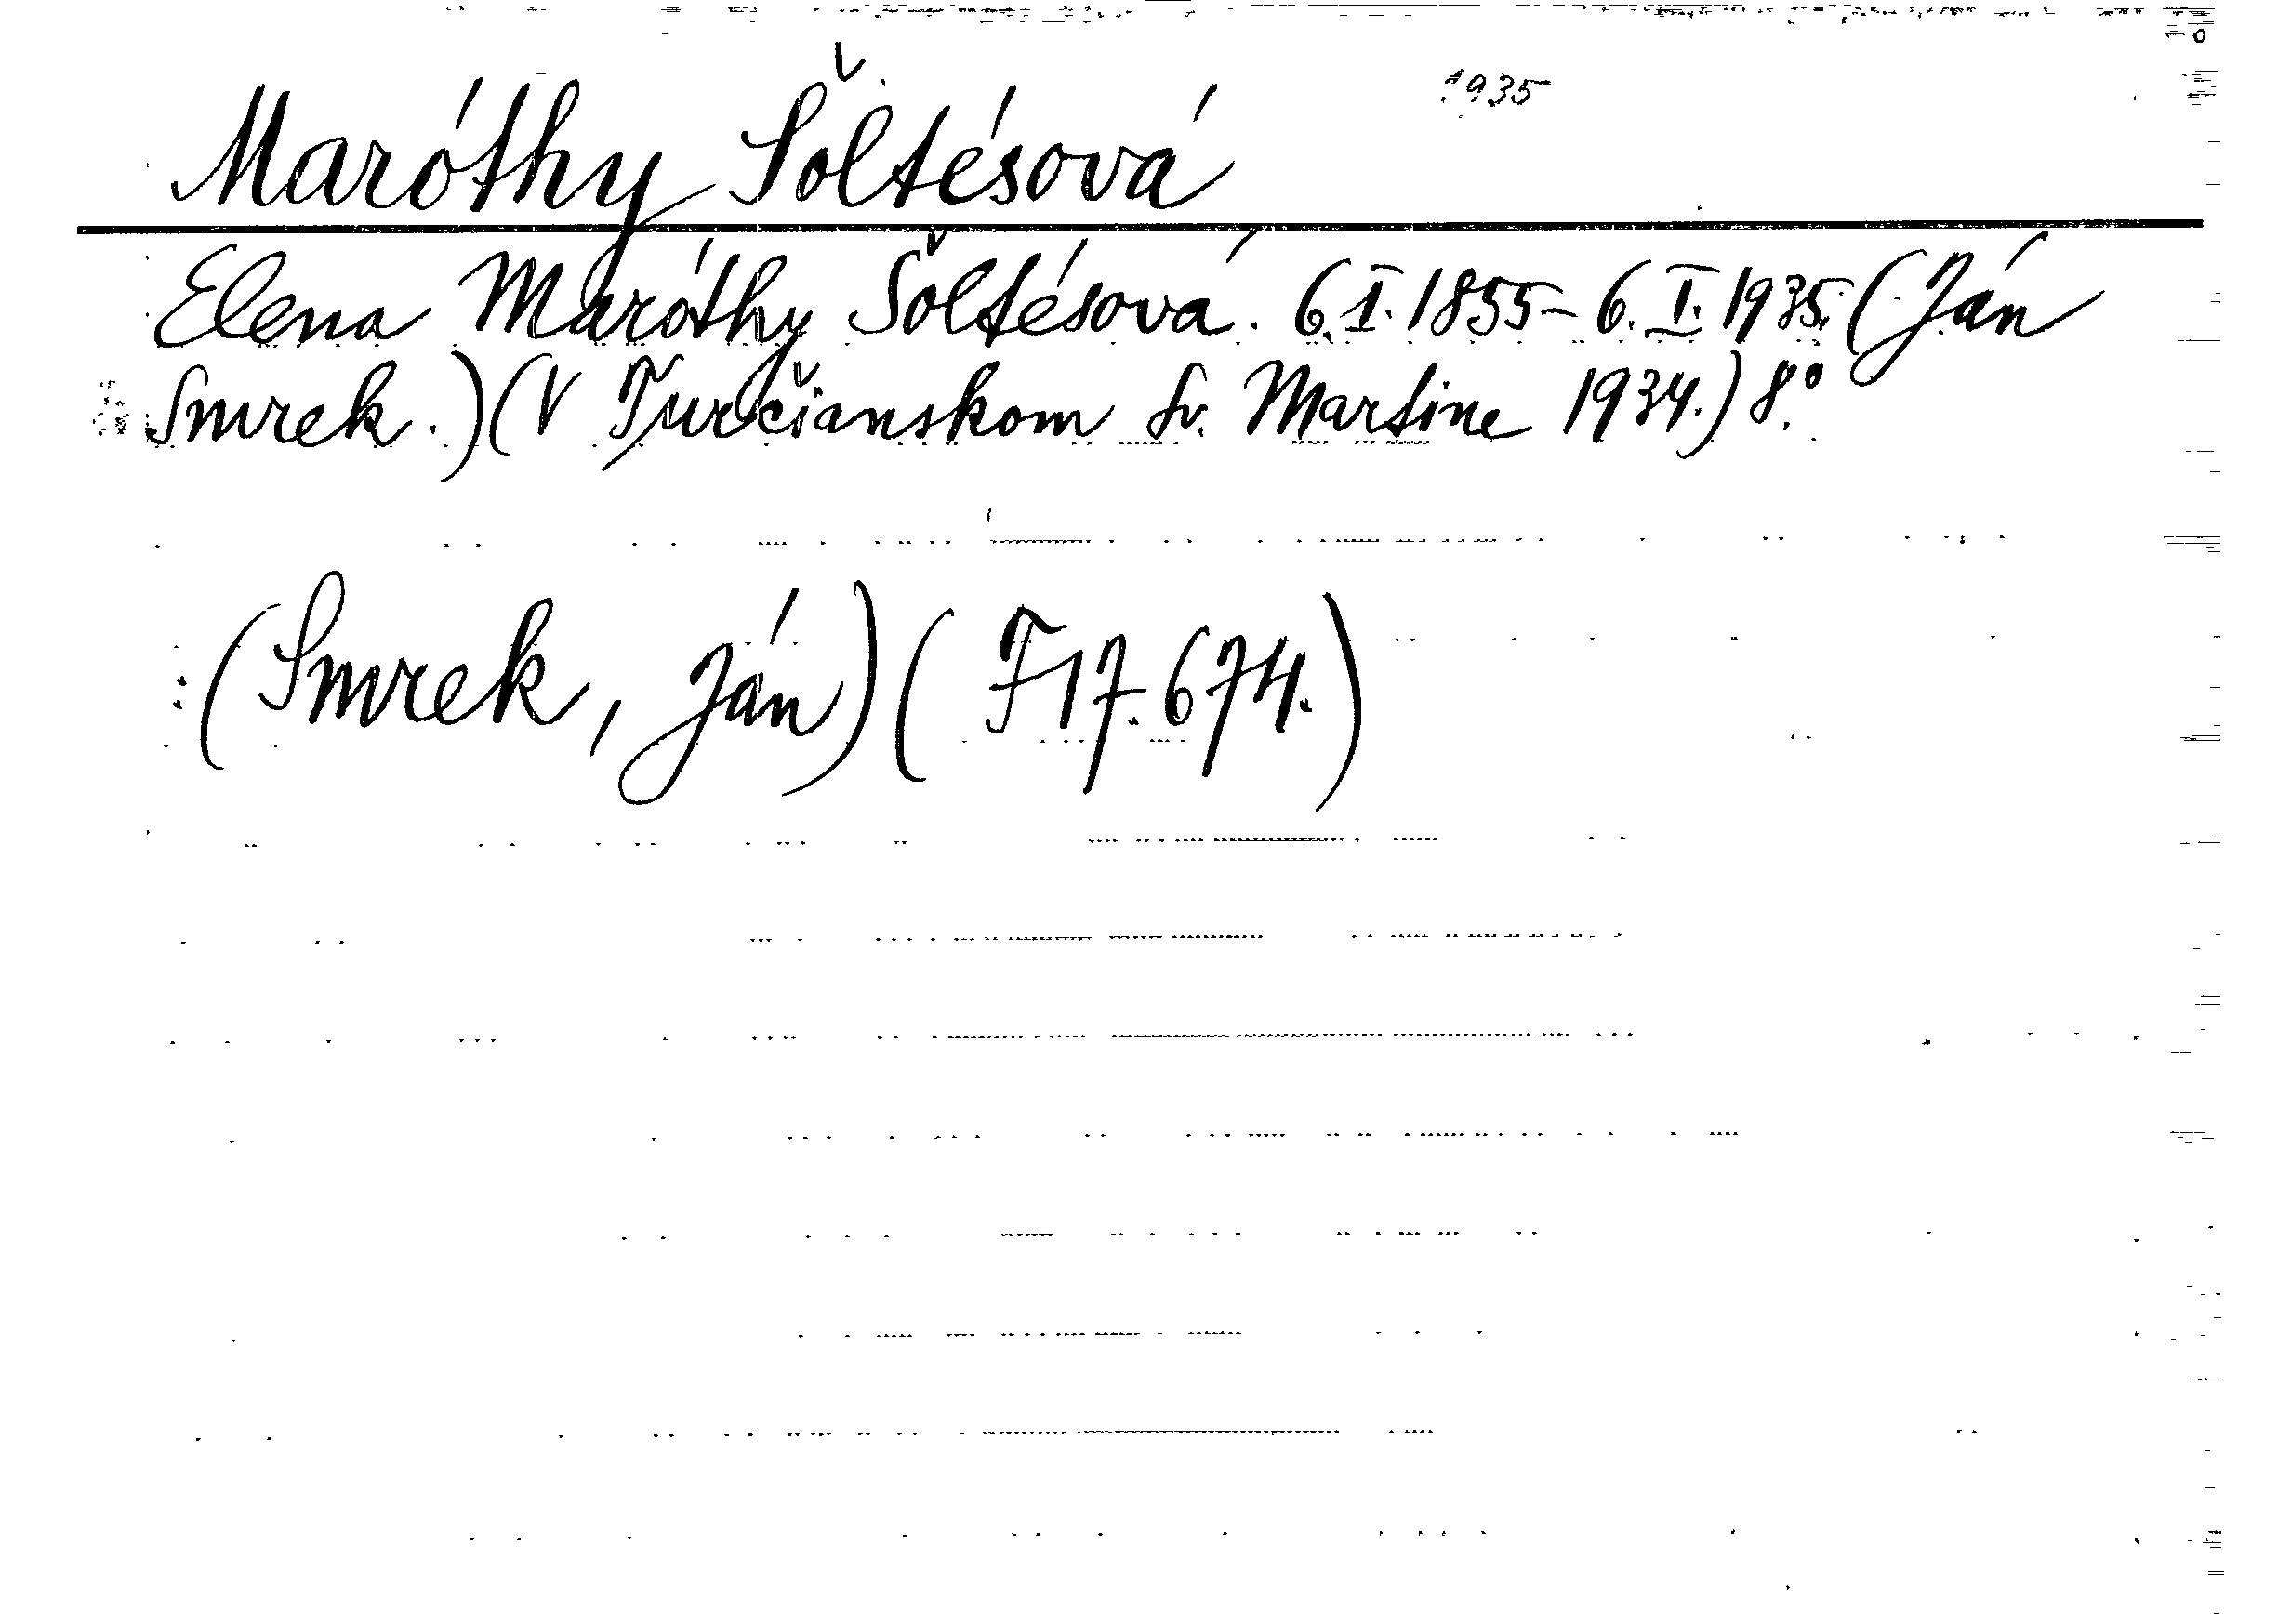 1935
Maróthy Šoltésová
Elena Maróthy Šoltésová. 6.I.1855-6.I.1935. (Ján
Smrek.) (V Turčianskom Sv. Martine 1934.) 8.°
(Smrek, Ján) (F17.674.)